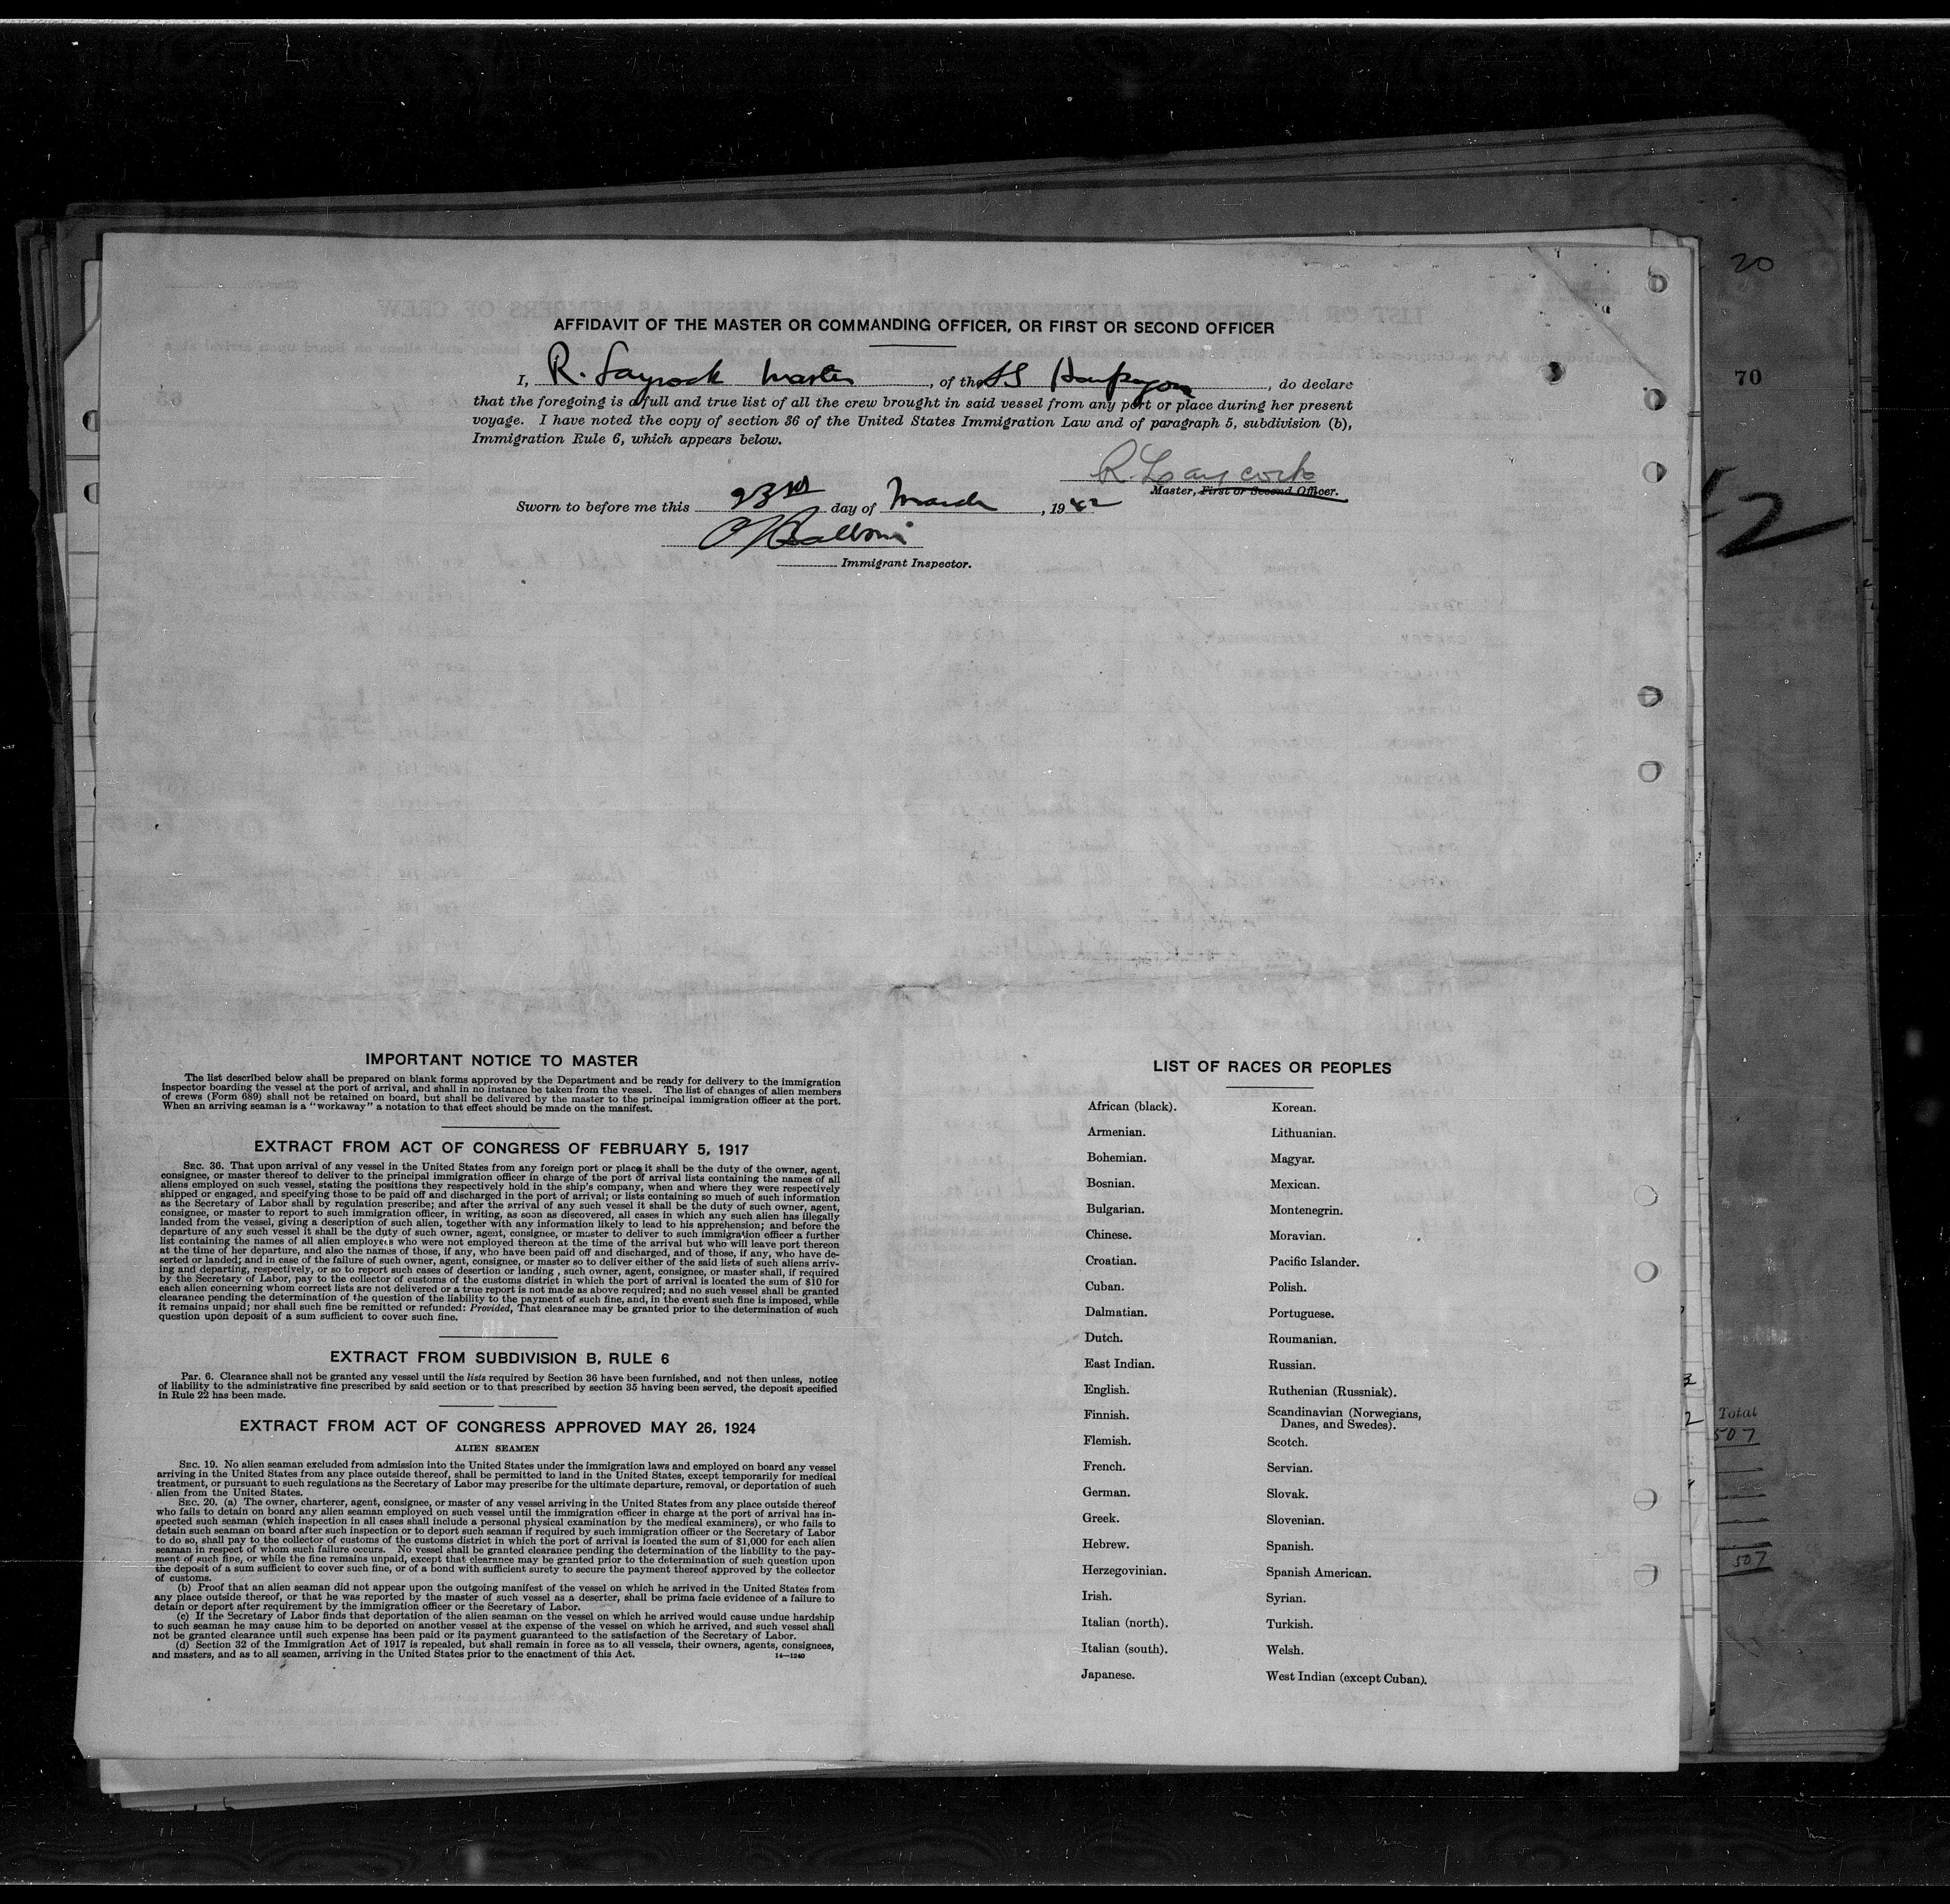 AFFIDAVIT OF THE MASTER OR COMMANDING OFFICER, OR FIRST OR SECOND OFFICER
I, R. Laycock Master, of the SS Harpagon, do declare
that the foregoing is a full and true list of all the crew brought in said vessel from any port or place during her present
voyage. I have noted the copy of section 36 of the United States Immigration Law and of paragraph 5, subdivision (b),
Immigration Rule 6, which appears below.
R. Laycock
Master, First or Second Officer.
Sworn to before me this 23rd day of March, 1942
Immigrant Inspector.
20
70
IMPORTANT NOTICE TO MASTER
The list described below shall be prepared on blank forms approved by the Department and be ready for delivery to the immigration
inspector boarding the vessel at the port of arrival, and shall in no instance be taken from the vessel. The list of changes of alien members
of crews (Form 689) shall not be retained on board, but shall be delivered by the master to the principal immigration officer at the port.
When an arriving seaman is a "workaway" a notation to that effect should be made on the manifest.
EXTRACT FROM ACT OF CONGRESS OF FEBRUARY 5, 1917
SEC. 36. That upon arrival of any vessel in the United States from any foreign port or place it shall be the duty of the owner, agent,
consignee, or master thereof to deliver to the principal immigration officer in charge of the port of arrival lists containing the names of all
aliens employed on such vessel, stating the positions they respectively hold in the ship's company, when and where they were respectively
shipped or engaged, and specifying those to be paid off and discharged in the port of arrival; or lists containing so much of such information
as the Secretary of Labor shall by regulation prescribe; and after the arrival of any such vessel it shall be the duty of such owner, agent,
consignee, or master to report to such immigration officer, in writing, as soon as discovered, all cases in which any such alien has illegally
landed from the vessel, giving a description of such alien, together with any information likely to lead to his apprehension; and before the
departure of any such vessel it shall be the duty of such owner, agent, consignee, or master to deliver to such immigration officer a further
list containing the names of all alien employees who were not employed thereon at the time of the arrival but who will leave port thereon
at the time of her departure, and also the names of those, if any, who have been paid off and discharged, and of those, if any, who have de-
serted or landed; and in case of the failure of such owner, agent, consignee, or master so to deliver either of the said lists of such aliens arriv-
ing and departing, respectively, or so to report such cases of desertion or landing, such owner, agent, consignee, or master shall, if required
by the Secretary of Labor, pay to the collector of customs of the customs district in which the port of arrival is located the sum of $10 for
each alien concerning whom correct lists are not delivered or a true report is not made as above required; and no such vessel shall be granted
clearance pending the determination of the question of the liability to the payment of such fine, and, in the event such fine is imposed, while
it remains unpaid; nor shall such fine be remitted or refunded: Provided, That clearance may be granted prior to the determination of such
question upon deposit of a sum sufficient to cover such fine.
EXTRACT FROM SUBDIVISION B, RULE 6
Par. 6. Clearance shall not be granted any vessel until the lists required by Section 36 have been furnished, and not then unless, notice
of liability to the administrative fine prescribed by said section or to that prescribed by section 35 having been served, the deposit specified
in Rule 22 has been made.
EXTRACT FROM ACT OF CONGRESS APPROVED MAY 26, 1924
ALIEN SEAMEN
SEC. 19. No alien seaman excluded from admission into the United States under the immigration laws and employed on board any vessel
arriving in the United States from any place outside thereof, shall be permitted to land in the United States, except temporarily for medical
treatment, or pursuant to such regulations as the Secretary of Labor may prescribe for the ultimate departure, removal, or deportation of such
alien from the United States.
SEC. 20. (a) The owner, charterer, agent, consignee, or master of any vessel arriving in the United States from any place outside thereof
who fails to detain on board any alien seaman employed on such vessel until the immigration officer in charge at the port of arrival has in-
spected such seaman (which inspection in all cases shall include a personal physical examination by the medical examiners), or who fails to
detain such seaman on board after such inspection or to deport such seaman if required by such immigration officer or the Secretary of Labor
to do so, shall pay to the collector of customs of the customs district in which the port of arrival is located the sum of $1,000 for each alien
seaman in respect of whom such failure occurs. No vessel shall be granted clearance pending the determination of the liability to the pay-
ment of such fine, or while the fine remains unpaid, except that clearance may be granted prior to the determination of such question upon
the deposit of a sum sufficient to cover such fine, or of a bond with sufficient surety to secure the payment thereof approved by the collector
of customs.
(b) Proof that an alien seaman did not appear upon the outgoing manifest of the vessel on which he arrived in the United States from
any place outside thereof, or that he was reported by the master of such vessel as a deserter, shall be prima facie evidence of a failure to
detain or deport after requirement by the immigration officer or the Secretary of Labor.
(c) If the Secretary of Labor finds that deportation of the alien seaman on the vessel on which he arrived would cause undue hardship
to such seaman he may cause him to be deported on another vessel at the expense of the vessel on which he arrived, and such vessel shall
not be granted clearance until such expense has been paid or its payment guaranteed to the satisfaction of the Secretary of Labor.
(d) Section 32 of the Immigration Act of 1917 is repealed, but shall remain in force as to all vessels, their owners, agents, consignees,
and masters, and as to all seamen, arriving in the United States prior to the enactment of this Act.
14—1240
LIST OF RACES OR PEOPLES
African (black).
Armenian.
Bohemian.
Bosnian.
Bulgarian.
Chinese.
Croatian.
Cuban.
Dalmatian.
Dutch.
East Indian.
English.
Finnish.
Flemish.
French.
German.
Greek.
Hebrew.
Herzegovinian.
Irish.
Italian (north).
Italian (south).
Japanese.
Korean.
Lithuanian.
Magyar.
Mexican.
Montenegrin.
Moravian.
Pacific Islander.
Polish.
Portuguese.
Roumanian.
Russian.
Ruthenian (Russniak).
Scandinavian (Norwegians,
Danes, and Swedes).
Scotch.
Servian.
Slovak.
Slovenian.
Spanish.
Spanish American.
Syrian.
Turkish.
Welsh.
West Indian (except Cuban).
Total
507
507